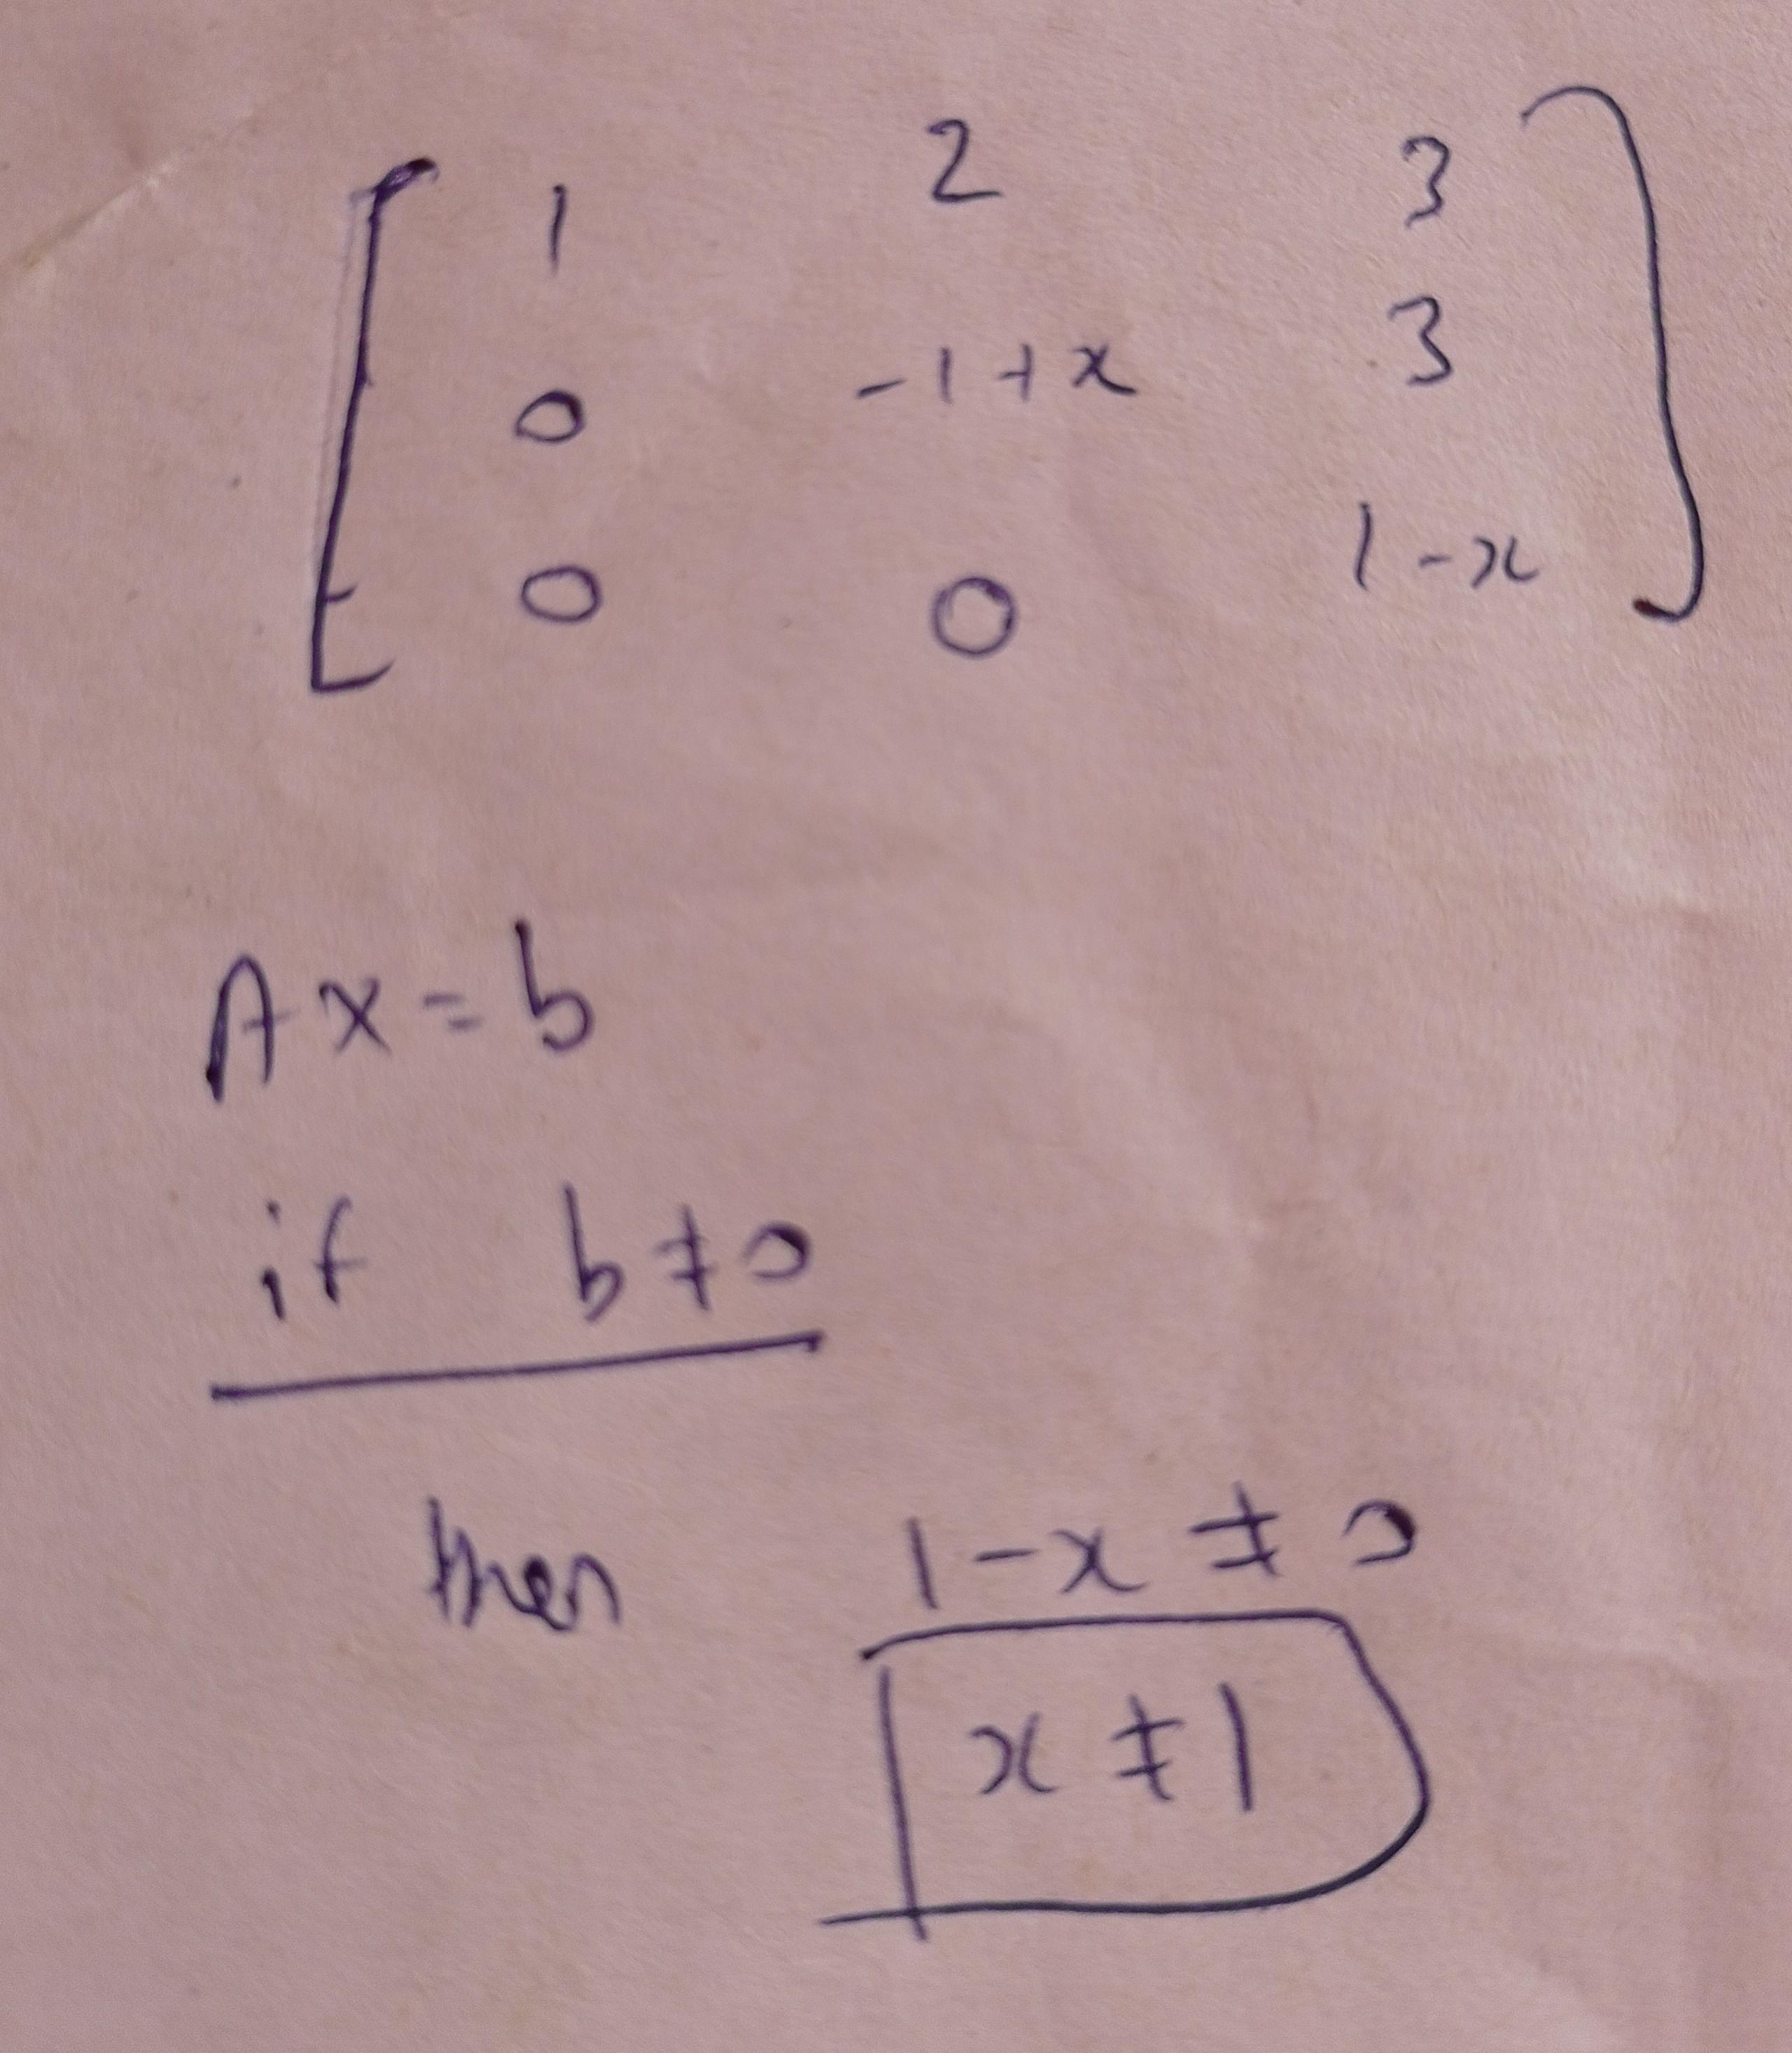 1 2 3
0 -1+x 3
0 0 1-x
Ax=b
if b≠0
then 1-x≠0
x≠1